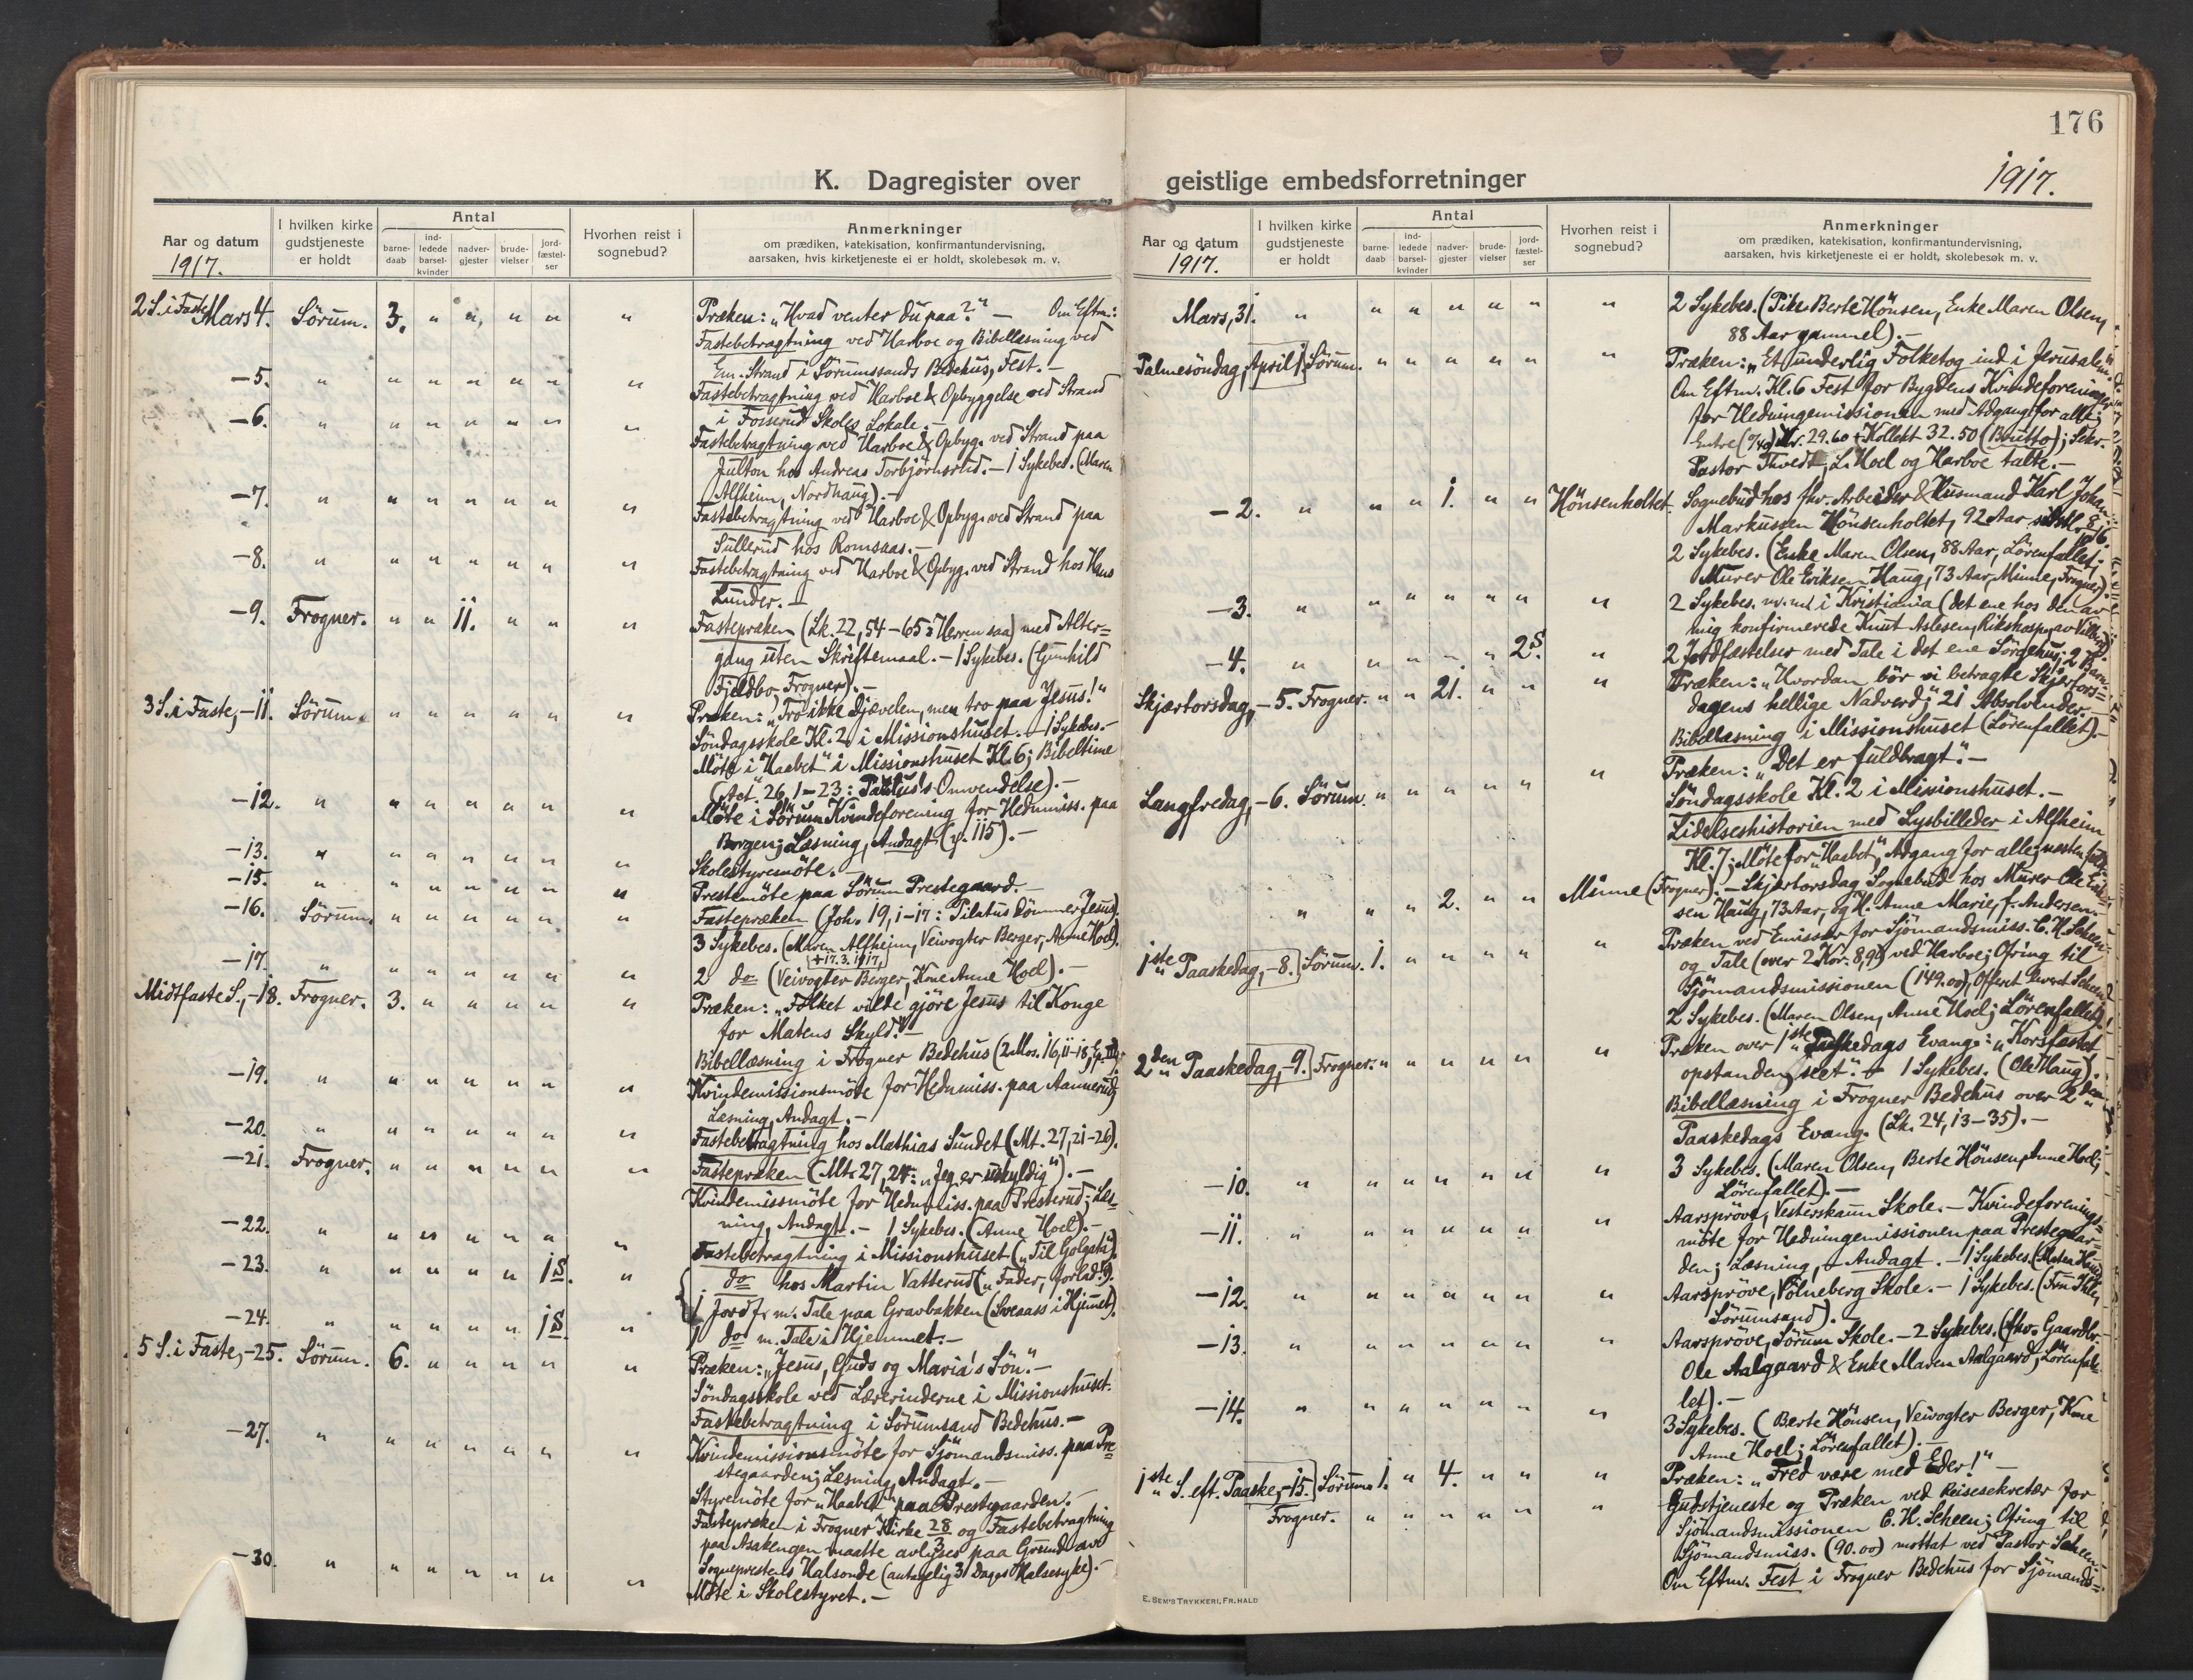 176
K. Dagregister over geistlige embedsforretninger
1917.
Aar og datum
1917.
I hvilken kirke gudstjeneste er holdt
Antal
barne-daab
ind-ledede barsel-kvinder
nadver-gjester
brude-vielser
jord-fæstel-ser
Hvorhen reist i sognebud?
Anmerkninger
om prædiken, katekisation, konfirmantundervisning,
aarsaken, hvis kirketjeneste ei er holdt, skolebesøk m. v.
2 S. i Faste Mars 4. Sörum. 3. " " " " " Præken: „Hvad venter du paa?" — Om Eftm.:
Fastebetragtning ved Harboe og Bibellæsning ved
Em. Strand i Sörumsands Bedehus, Fest. —
— 5. " " " " " " " Fastebetragtning ved Harboe & Opbyggelse ved Strand
i Fosserud Skoles Lokale. —
— 6. " " " " " " " Fastebetragtning ved Harboe & Opbyg. ved Strand paa
Julton hos Andreas Torbjörnsrud. — 1 Sykebes. (Maren
Alfheim, Nordhaug). —
— 7. " " " " " " " Fastebetragtning ved Harboe & Opbyg. ved Strand paa
Sullerud hos Romsaas. —
— 8. " " " " " " " Fastebetragtning ved Harboe & Opbyg. ved Strand hos Hans
Lunder. —
— 9. Frogner. " " 11. " " " Fastepræken (Lk. 22, 54—65: Herren saa) med Alter=
gang uten Skriftemaal. — 1 Sykebes. (Gunhild
Fjeldbo, Frogner). —
3 S. i Faste, — 11. Sörum. " " " " " " Præken: „Tro ikke Djævelen, men tro paa Jesus!"
Söndagsskole Kl. 2 i Missionshuset. — 1 Sykebes. —
Möte i „Haabet" i Missionshuset Kl. 6; Bibeltime
(Act. 26, 1—23: Paulus's Omvendelse). —
— 12. " " " " " " " Möte i Sörum Kvindeforening for Hednmiss. paa
Borgen; Læsning, Andagt (p. 115). —
— 13. " " " " " " " Skolestyremöte. —
— 15. " " " " " " " Prestemöte paa Sörum Prestegaard. —
— 16. Sörum. " " " " " " Fastepræken (Joh. 19, 1—17: Pilatus dömmer Jesus).
3 Sykebes. (Maren Alfheim, Veivogter Berger, Anne Hoel).
+ 17.3.1917.
— 17. " " " " " " " 2 do (Veivogter Berger, Kone Anne Hoel). —
Midtfaste S., — 18. Frogner. 3. " " " " " Præken: „Folket vilde gjöre Jesus til Konge
for Matens Skyld." —
Bibellæsning i Frogner Bedehus (2 Mos. 16, 11—18,
— 19. " " " " " " " Kvindemissionsmöte for Hednmiss. paa Aamerud;
Læsning, Andagt. —
— 20. " " " " " " " Fastebetragtning hos Mathias Sundet (Mt. 27, 21—26).
— 21. Frogner. " " " " " " Fastepræken (Mt. 27, 24: „Jeg er uskyldig"). —
Kvindemissmöte for Hednmiss. paa Presterud; Læs=
ning, Andagt. — 1 Sykebes. (Anne Hoel). —
— 22. " " " " " " " Fastebetragtning i Missionshuset („Til Golgata").
— 23. " " " " " 1 S. " do hos Martin Vatterud („Fader, forlad").
1 Jordf. m. Tale paa Gravbakken (Sveaass i Hjemet).
— 24. " " " " " 1 S. " 1 do m. Tale i Hjemmet. —
5 S. i Faste, — 25. Sörum. 6. " " " " " Præken: „Jesus, Guds og Maria's Sön." —
Söndagsskole ved Lærerinderne i Missionshuset.
Fastebetragtning i Sörumsand Bedehus. —
— 27. " " " " " " " Kvindemissionsmöte for Sjömandsmiss. paa Pre=
stegaarden; Læsning, Andagt. —
Styremöte for „Haabet" paa Prestegaarden. —
Fastepræken i Frogner Kirke 28/3 og Fastebetragtning
paa Asakengen maatte avlyses paa Grund av
Sogneprestens Halsonde (antagelig 31 Dages Halsesyke). —
— 30. " " " " " " " Möte i Skolestyret. —
Aar og datum
1917.
I hvilken kirke gudstjeneste er holdt
Antal
barne-daab
ind-ledede barsel-kvinder
nadver-gjester
brude-vielser
jord-fæstel-ser
Hvorhen reist i sognebud?
Anmerkninger
om prædiken, katekisation, konfirmantundervisning,
aarsaken, hvis kirketjeneste ei er holdt, skolebesøk m. v.
Mars, 31. " " " " " " " 2 Sykebes. (Pike Berte Hönsen, Enke Maren Olsen,
88 Aar gammel). —
Palmesöndag, April 1. Sörum. " " " " " " Præken: „Et underlig Folketog ind i Jerusalem."
Om Eftm. Kl. 6 Fest for Bygdens Kvindeforeninger
for Hedningemissionen med Adgang for alle;
Entre Kr. 29.60 + Kollekt 32.50 (Brutto); Sekr.
Pastor Thvedt, L. Hoel og Harboe talte. —
— 2. " " " 1. " " Hönsenholtet. Sognebud hos fhv. Arbeider & Husmand Karl Johan
Markussen Hönsenholtet, 92 Aar
2 Sykebes. (Enke Maren Olsen, 88 Aar, Lörenfallet;
Murer Ole Eriksen Haug, 73 Aar, Minne, Frogner).
— 3. " " " " " " " 2 Sykebes. i Kristiania (det ene hos den av
mig konfirmerede Knut Aslesen, Rikshosp.
— 4. " " " " " 2 S. " 2 Jordfæstelser med Tale i det ene Sörgehus; 2 Barn.
Skjærtorsdag, — 5. Frogner. " " 21. " " " Præken: „Hvordan bör vi betragte Skjærtors=
dagens hellige Nadverd;" 21 Absolvender.
Bibellæsning i Missionshuset (Lörenfallet). —
Langfredag, — 6. Sörum. " " " " " " Præken: „Det er fuldbragt". —
Söndagsskole Kl. 2 i Missionshuset. —
Lidelseshistorien med Lysbilleder i Alfheim
Kl. 7; Möte for „Haabet", Adgang for alle;
" " " 2. " " Minne (Frogner). — Skjærtorsdag Sognebud hos Murer Ole Erik=
sen Haug, 73 Aar, og H. Anne Marie, f. Andersen. —
1ste Paaskedag, — 8. Sörum. 1. " " " " " Præken ved Emissær for Sjömandsmiss. C. H. Scheen
og Tale (over 2 Kor. 8, 9) ved Harboe; Ofring til
Sjömandsmissionen (149.00),
2 Sykebes. (Maren Olsen, Anne Hoel; Lörenfallet).
2den Paaskedag, — 9. Frogner. " " " " " " Præken over 1ste Paaskedags Evang.: „Korsfæstet
opstanden, seet". — 1 Sykebes. (Ole Haug).
Bibellæsning i Frogner Bedehus over 2den
Paaskedags Evang. (Lk. 24, 13—35). —
— 10. " " " " " " " 3 Sykebes. (Maren Olsen, Berte Hönsen, Anne Hoel;
Lörenfallet). —
— 11. " " " " " " " Aarspröve, Vesterskaun Skole. — Kvindeforenings=
möte for Hedningemissionen paa Prestegaar=
den; Læsning, Andagt. — 1 Sykebes.
— 12. " " " " " " " Aarspröve, Völneberg Skole. — 1 Sykebes. (Fru
Sörumsand). —
— 13. " " " " " " " Aarspröve, Sörum Skole. — 2 Sykebes. (fhv. Gaardbr.
Ole Aalgaard & Enke Maren Aalgaard, Lörenfal=
let). —
— 14. " " " " " " " 3 Sykebes. (Berte Hönsen, Veivogter Berger, Kone
Anne Hoel; Lörenfallet). —
1ste S. eft. Paaske, — 15. Sörum. 1. " 4. " " " Præken: „Fred være med Eder!" —
Frogner. " " " " " " Gudstjeneste og Præken ved Reisesekretær for
Sjömandsmissionen C. H. Scheen; Ofring til
Sjömandsmiss. (90.00) mottat ved Pastor Scheen. —
Om Eftm. Fest i Frogner Bedehus for Sjömands=
E. SEM'S TRYKKERI, FR.HALD